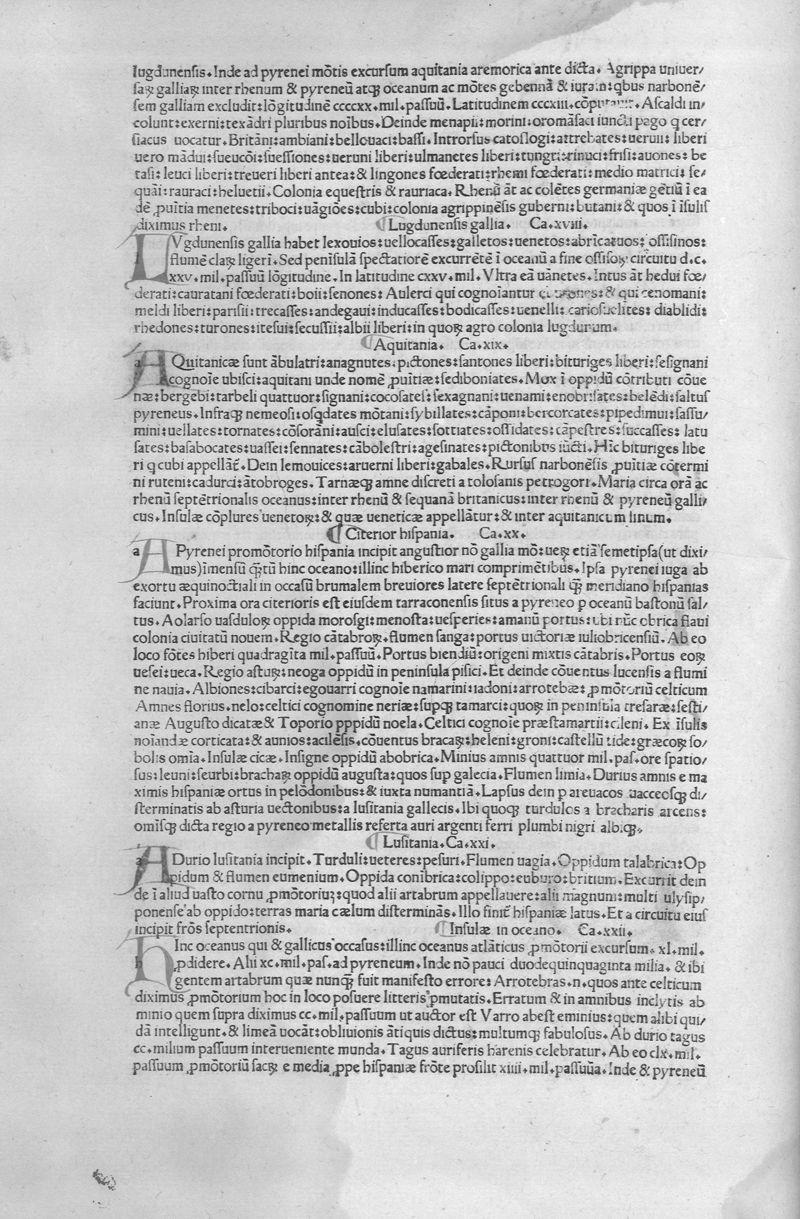 lugdunensis. Inde ad pyrenei mōtis excursum aquitania aremorica ante dicta. Agrippa uniuer/
sas gallias inter rhenum & pyreneū atqꝫ oceanum ac mōtes gebennā & iuram: qbus narbonē/
sem galliam excludit: lōgitudinē ccccxx. mil. passuū. Latitudinem cccxiii. Ascaldi in/
colunt: exerni: texādri pluribus noībus. Deinde menapii: morini: oromāsaci iuncti pago q cer/
siacus uocatur. Britāni: ambiani: bellouaci: bassi. Introrsus catoslogi: atrebates: neruii: liberi
uero mādui: sueucōi: suessiones: ueruni liberi: ulmanetes liberi: tungri: rinuci: frisi: auones: be
tasi: leuci liberi: treueri liberi antea: & lingones fœderati: rhemi fœderati: medio matrici: se/
quāi: rauraci: heluetii. Colonia equestris & rauriaca. Rhenū āt ac colētes germaniæ gētiū ī ea
dē puītia menetes: triboci: uāgiōes: cubi: colonia agrippinēsis guberni: butani: & quos ī īsulis
diximus rheni. ¶ Lugdunensis gallia. Ca. xviii.
LVgdunensis gallia habet lexouios: uellocasses: galletos: uenetos: abricatuos: ossisinos:
flumē clarꝝ ligerī. Sed penīsulā spectatiorē excurrētē ī oceanū a fine ossisoꝝ circuitu d.c.
xxv. mil. passuū lōgitudine. In latitudine cxxv. mil. Vltra eā uānetes. Intus āt hedui fœ/
derati: cauratani fœderati: boii: senones: Aulerci qui cognoīantur & qui cenomani:
meldi liberi: parisii: trecasses: andegaui: inducasses: bodicasses: uenelli: cariosuelites: diablidi:
rhedones: turones: itesui: secussii: albii liberi: in quoꝝ agro colonia lugdurum.
¶ Aquitania. Ca. xix.
AQuitanicæ sunt ābulatri: anagnutes: pictones: santones liberi: bituriges liberi: sesignani
cognoīe ubisci: aquitani unde nomē puītiæ: sediboniates. Mox ī oppidū cōtributi cōue
næ: bergebi: tarbeli quattuor: signani: cocosates: sexagnani: uenami: enobrisates: belēdi: saltus
pyreneus. Infraqꝫ nemeosi: osqdates mōtani: sybillates: cāponi: bercorcates: pipedimui: sassu/
mini: uellates: tornates: cōsorāni: ausci: elusates: sottiates: ossidates: cāpestres: succasses: latu
sates: basabocates: uassei: sennates: cābolestri: agesinates: pictonibus iūcti. Hīc bituriges libe
ri q cubi appellāt̄. Dein lemouices: aruerni liberi: gabales. Rursus narbonēsis puītiæ cōtermi
ni ruteni: cadurci: ātobroges. Tarnæqꝫ amne discreti a tolosanis petrogori. Maria circa orā ac
rhenū septētrionalis oceanus: inter rhenū & sequanā britanicus: inter rhenū & pyreneū galli/
cus. Insulæ cōplures uenetoꝝ: & quæ ueneticæ appellātur: & inter aquitanicum linum.
¶ Citerior hispania. Ca. xx.
a A Pyrenei promōtorio hispania incipit angustior nō gallia mō: ueꝝ etiā semetipsa (ut dixi/
mus) īmensū q̄tū hinc oceano: illinc hiberico mari comprimētibus. Ipsa pyrenei iuga ab
exortu æquinoctiali in occasū brumalem breuiores latere septētrionali q̄ meridiano hispanias
faciunt. Proxima ora citerioris est eiusdem tarraconensis situs a pyreneo p oceanū bastonū sal/
tus. Aolarso uasdulos: oppida morosgi: menosta: uesperies: amanū portus: ubi nūc obrica flaui
colonia ciuitatū nouem. Regio cātabroꝝ. flumen sanga: portus uictoriæ iuliobricensiū. Ab eo
loco fōtes hiberi quadragīta mil. passuū. Portus biendiū: origeni mixtis cātabris. Portus eoꝝ
uesei: ueca. Regio astuꝝ: neoga oppidū in peninsula pisici. Et deinde cōuentus lucensis a flumi
ne nauia. Albiones: cibarci: egouarri cognoīe namarini: iadoni: arrotebæ: ꝓmōtoriū celticum
Amnes florius. nelo: celtici cognomine neriæ: supqꝫ tamarci: quoꝝ in peninsula tresaræ: sesti/
anæ Augusto dicatæ & Toporio ppidū noela. Celtici cognoīe præstamartii: cileni. Ex īsulis
noīandæ corticata: & aunios: acilēsis. cōuentus bracaꝝ: heleni: groni: castellū tide: græcoꝝ so/
bolis omīa. Insulæ cicæ. Insigne oppidū abobrica. Minius amnis quattuor mil. pas. ore spatio/
sus: leuni: seurbi: brachaꝝ oppidū augusta: quos sup galecia. Flumen limia. Durius amnis e ma
ximis hispaniæ ortus in pelōdonibus: & iuxta numantiā. Lapsus dein p areuacos uacceosqꝫ di/
sterminatis ab asturia uectonibus: a lusitania gallecis. Ibi quoqꝫ turdulos a bracharis arcens:
omīsqꝫ dicta regio a pyreneo metallis referta auri argenti ferri plumbi nigri albiqꝫ.
¶ Lusitania. Ca. xxi.
A Durio lusitania incipit. Turduli: ueteres: pesuri. Flumen uagia. Oppidum talabrica: Op
pidum & flumen eumenium. Oppida conibrica: colippo: euburo: britium. Excurrit dein
de ī aliud uasto cornu ꝓmōtoriuꝫ: quod alii artabrum appellauere: alii magnum: multi ulysip/
ponense ab oppido: terras maria cælum disterminās. Illo finit̄ hispaniæ latus. Et a circuitu eius
incipit frōs septentrionis. ¶ Insulæ in oceano. Ca. xxii.
HInc oceanus qui & gallicus occasus: illinc oceanus atlāticus ꝓmōtorii excursum. xl. mil.
ꝓdidere. Alii xc. mil. pas. ad pyreneum. Inde nō pauci duodequinquaginta milia. & ibi
gentem artabrum quæ nunqꝫ fuit manifesto errore: Arrotebras. n. quos ante celticum
diximus ꝓmōtorium hoc in loco posuere litteris ꝑmutatis. Erratum & in amnibus inclytis ab
minio quem supra diximus cc. mil. passuum ut auctor est Varro abest eminius: quem alibi qui/
dā intelligunt. & limeā uocāt: obliuionis ātiquis dictus: multumqꝫ fabulosus. Ab durio tagus
cc. milium passuum interueniente munda. Tagus auriferis harenis celebratur. Ab eo clx. mil.
passuum ꝓmōtoriū sacꝝ e media ꝓpe hispaniæ frōte prosilit xiiii. mil. passuūa. Inde & pyreneū